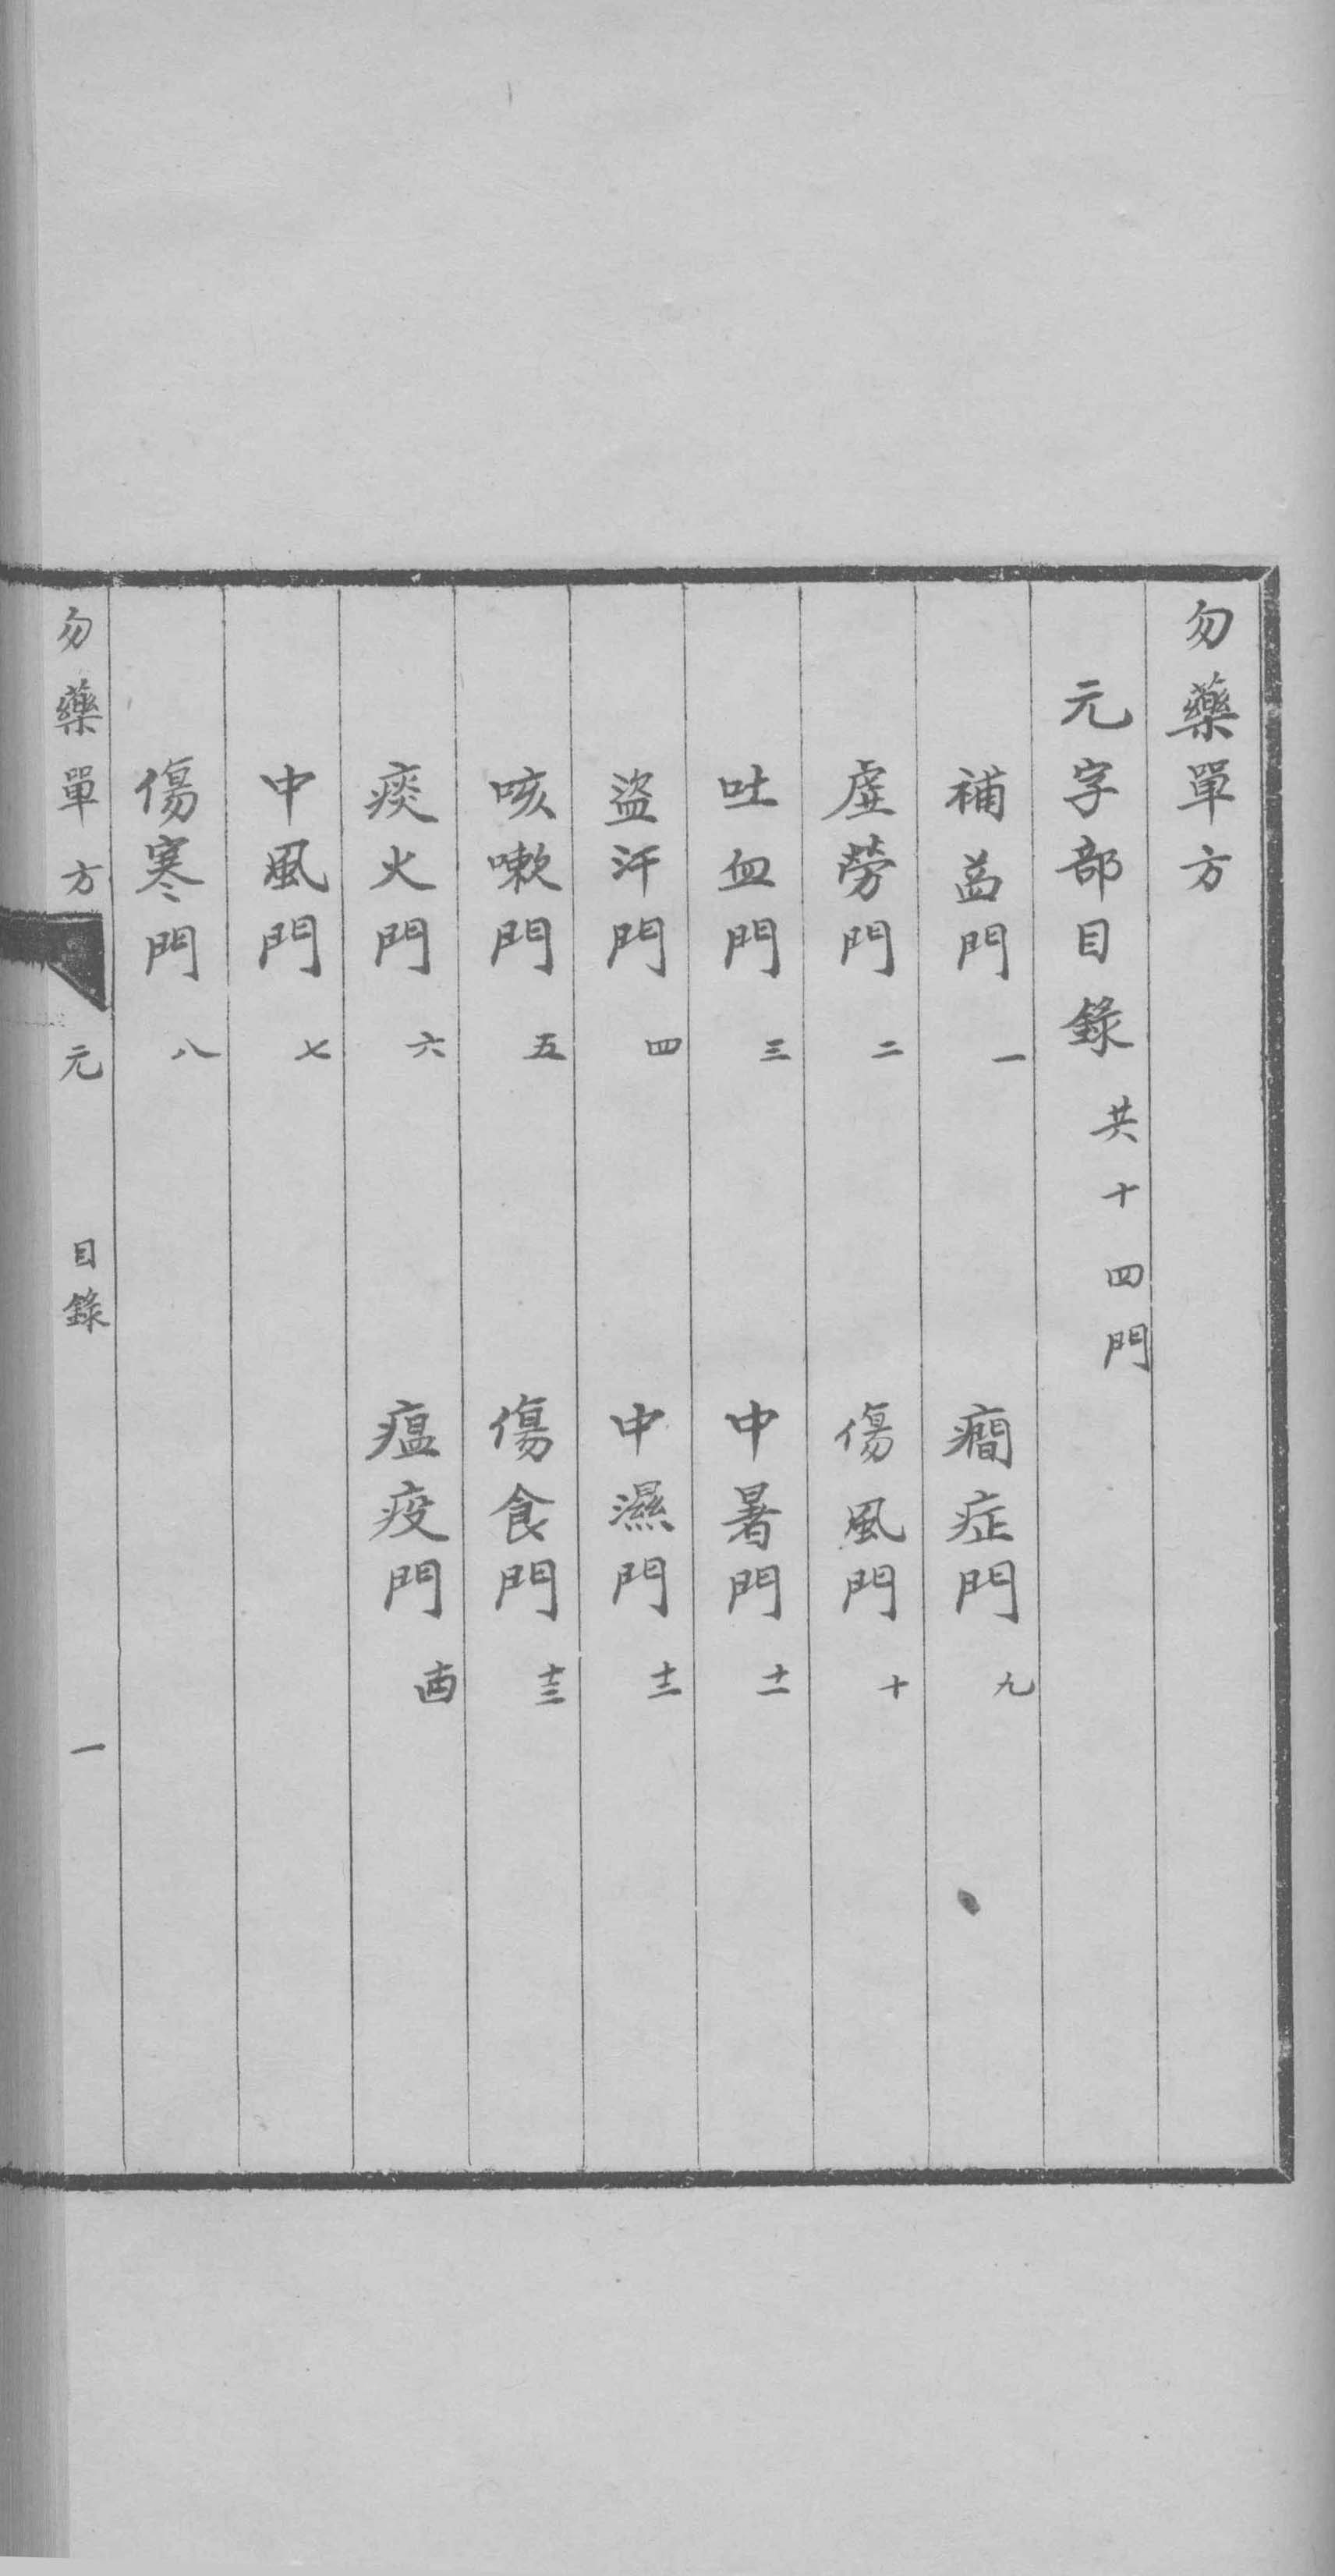 勿藥單方
元字部目錄 共十四門
補益門 一 癇症門 九
虛勞門 二 傷風門 十
吐血門 三 中暑門 十一
盜汗門 四 中濕門 十二
咳嗽門 五 傷食門 十三
痰火門 六 瘟疫門 十四
中風門 七
傷寒門 八
勿藥單方 元 目錄 一